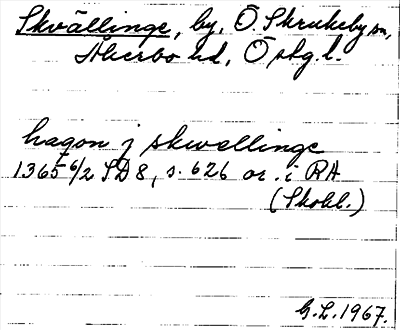 Skvällinge, by, Ö. Skrukeby sn,
Åkerbo hd, Östg. l.
hagon j skwellinge
1365 6/2 SD 8, s. 626 or. i RA
(Skokl.)
G.L. 1967.